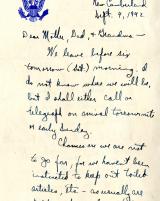 New Cumberland
Sept. 9, 1942
Dear Mother, Dad, & Grandma —
We leave before six
tomorrow (Sat.) morning. I
do not know where we will be,
but I shall either call or
telegraph on arrival tomorrow
or early Sunday.
Chances are we are not
to go far, for we haven't been
instructed to keep out toilet
articles, etc — as usually are